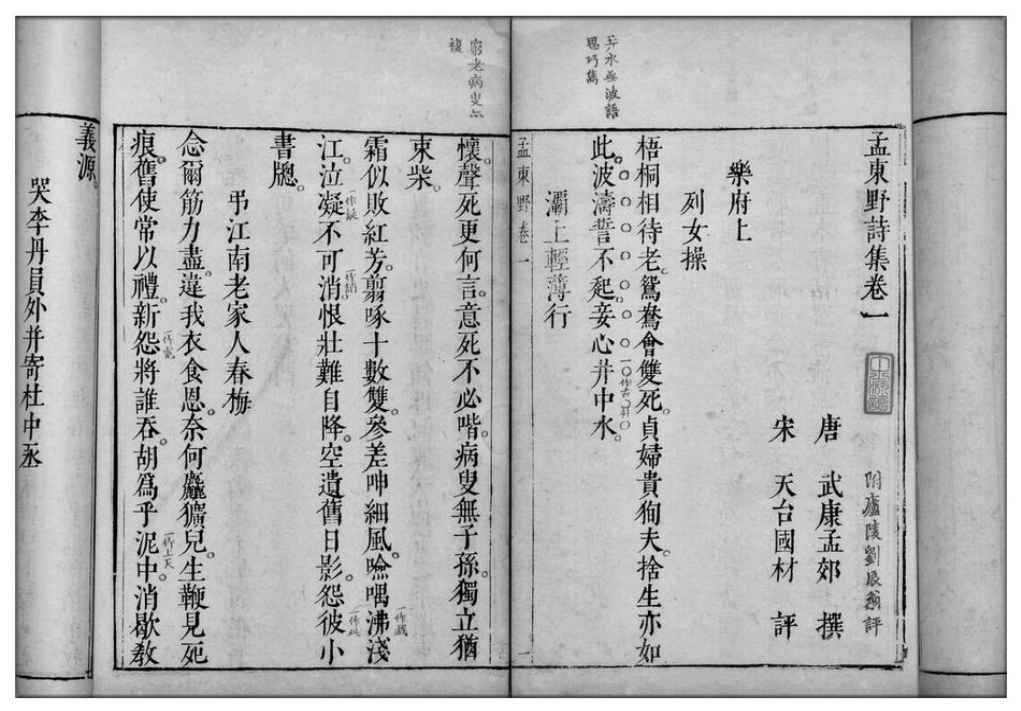 孟東野詩集卷一
附廬陵劉辰翁評
唐 武康孟郊 撰
宋 天台國材 評
樂府上
列女操
梧桐相待老鴛鴦會雙死貞婦貴狥夫捨生亦如
此波濤誓不起妾心井中水
一作古井
灞上輕薄行
井水無波語
思巧雋
孟東野卷一
一
窮老病叟占
複
懷聲死更何言意死不必喈病叟無子孫獨立猶
束柴
霜似敗紅芳翦啄十數雙參差呻細風噞喁沸淺
一作戲
江泣凝不可消恨壯難自降空遺舊日影怨彼小
書牎
弔江南老家人春梅
念爾筋力盡違我衣食恩奈何麤獷兒生鞭見死
痕舊使常以禮新怨將誰吞胡爲乎泥中消歇教
一作上天
義源
哭李丹員外并寄杜中丞